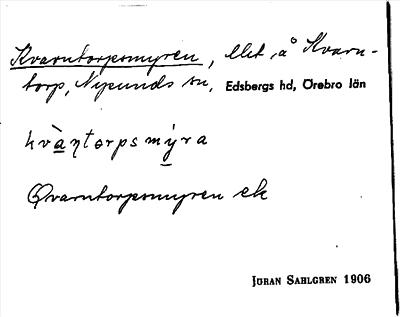 Kvarntorpsmyren, Mst å Kvarn-
torp, Nysunds sn, Edsbergs hd, Örebro län
kvàηtorpsmýra
Qvarntorpsmyren ek
JÖRAN SAHLGREN 1906